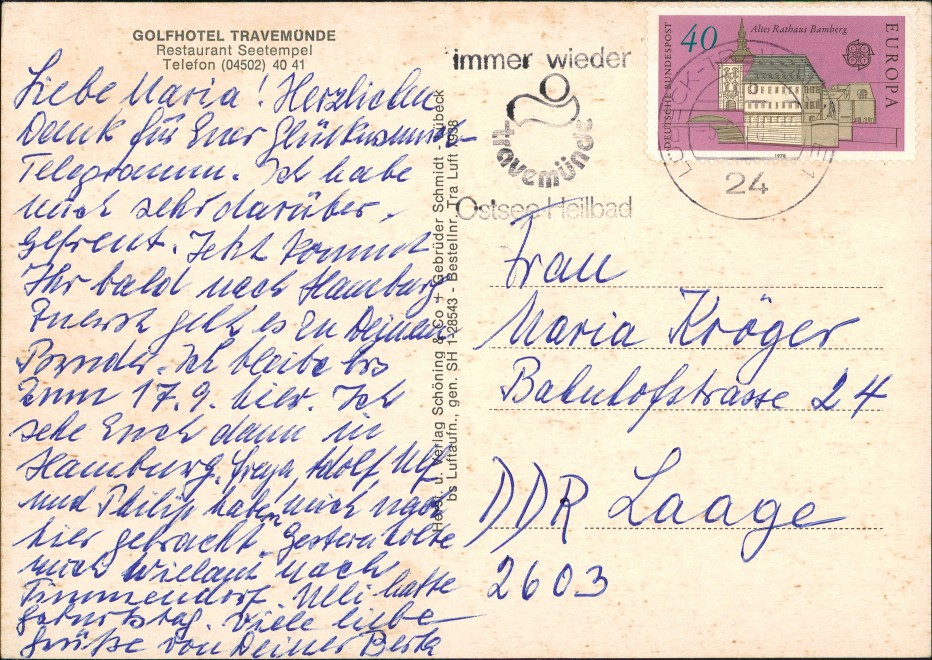 GOLFHOTEL TRAVEMÜNDE
Restaurant Seetempel
Telefon (04502) 40 41
Liebe Maria! Herzlichen
Dank für Euer Glückwunsch-
Telegramm. Ich habe
mich sehr darüber
gefreut. Jetzt kommt
Ihr bald nach Hamburg
Zuerst geht es zu Deinem
Bruder. Ich bleibe bis
zum 17.9. hier. Ich
sehe Euch dann in
Hamburg. Freya, Adolf, Ulf
und Philip haben mich nach
hier gebracht. Gestern holte
mich Wieland nach
Timmendorf. Ulli hatte
Geburtstag. Viele liebe
Grüße von Deiner Berta
Herst. u. Verlag Schöning & Co + Gebrüder Schmidt - Lübeck
bs Luftaufn., gen. SH 1-28543 - Bestellnr. Tra Luft 7938
immer wieder
travemünde
Ostsee-Heilbad
24
DEUTSCHE BUNDESPOST
40
Altes Rathaus Bamberg
EUROPA
1978
Frau
Maria Kröger
Bahnhofstrasse 24
DDR Laage
2603